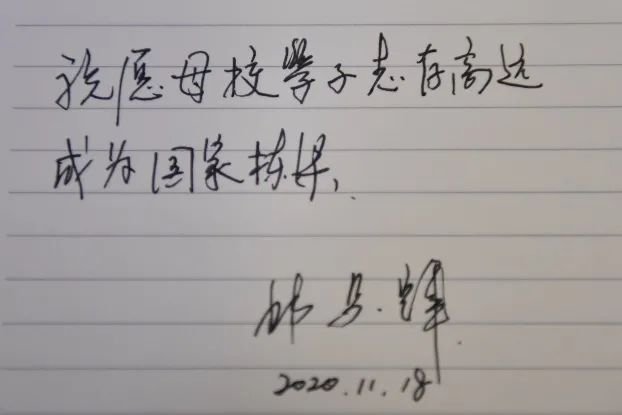 祝愿母校學子志存高远
成为国家栋梁,
2020.11.18